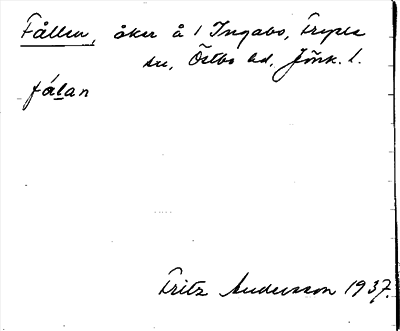 Fållen, åker å 1 Ingabo, Tryde
sn, Östbo hd, Jönk. l.
fålan
Fritz Andersson 1937.